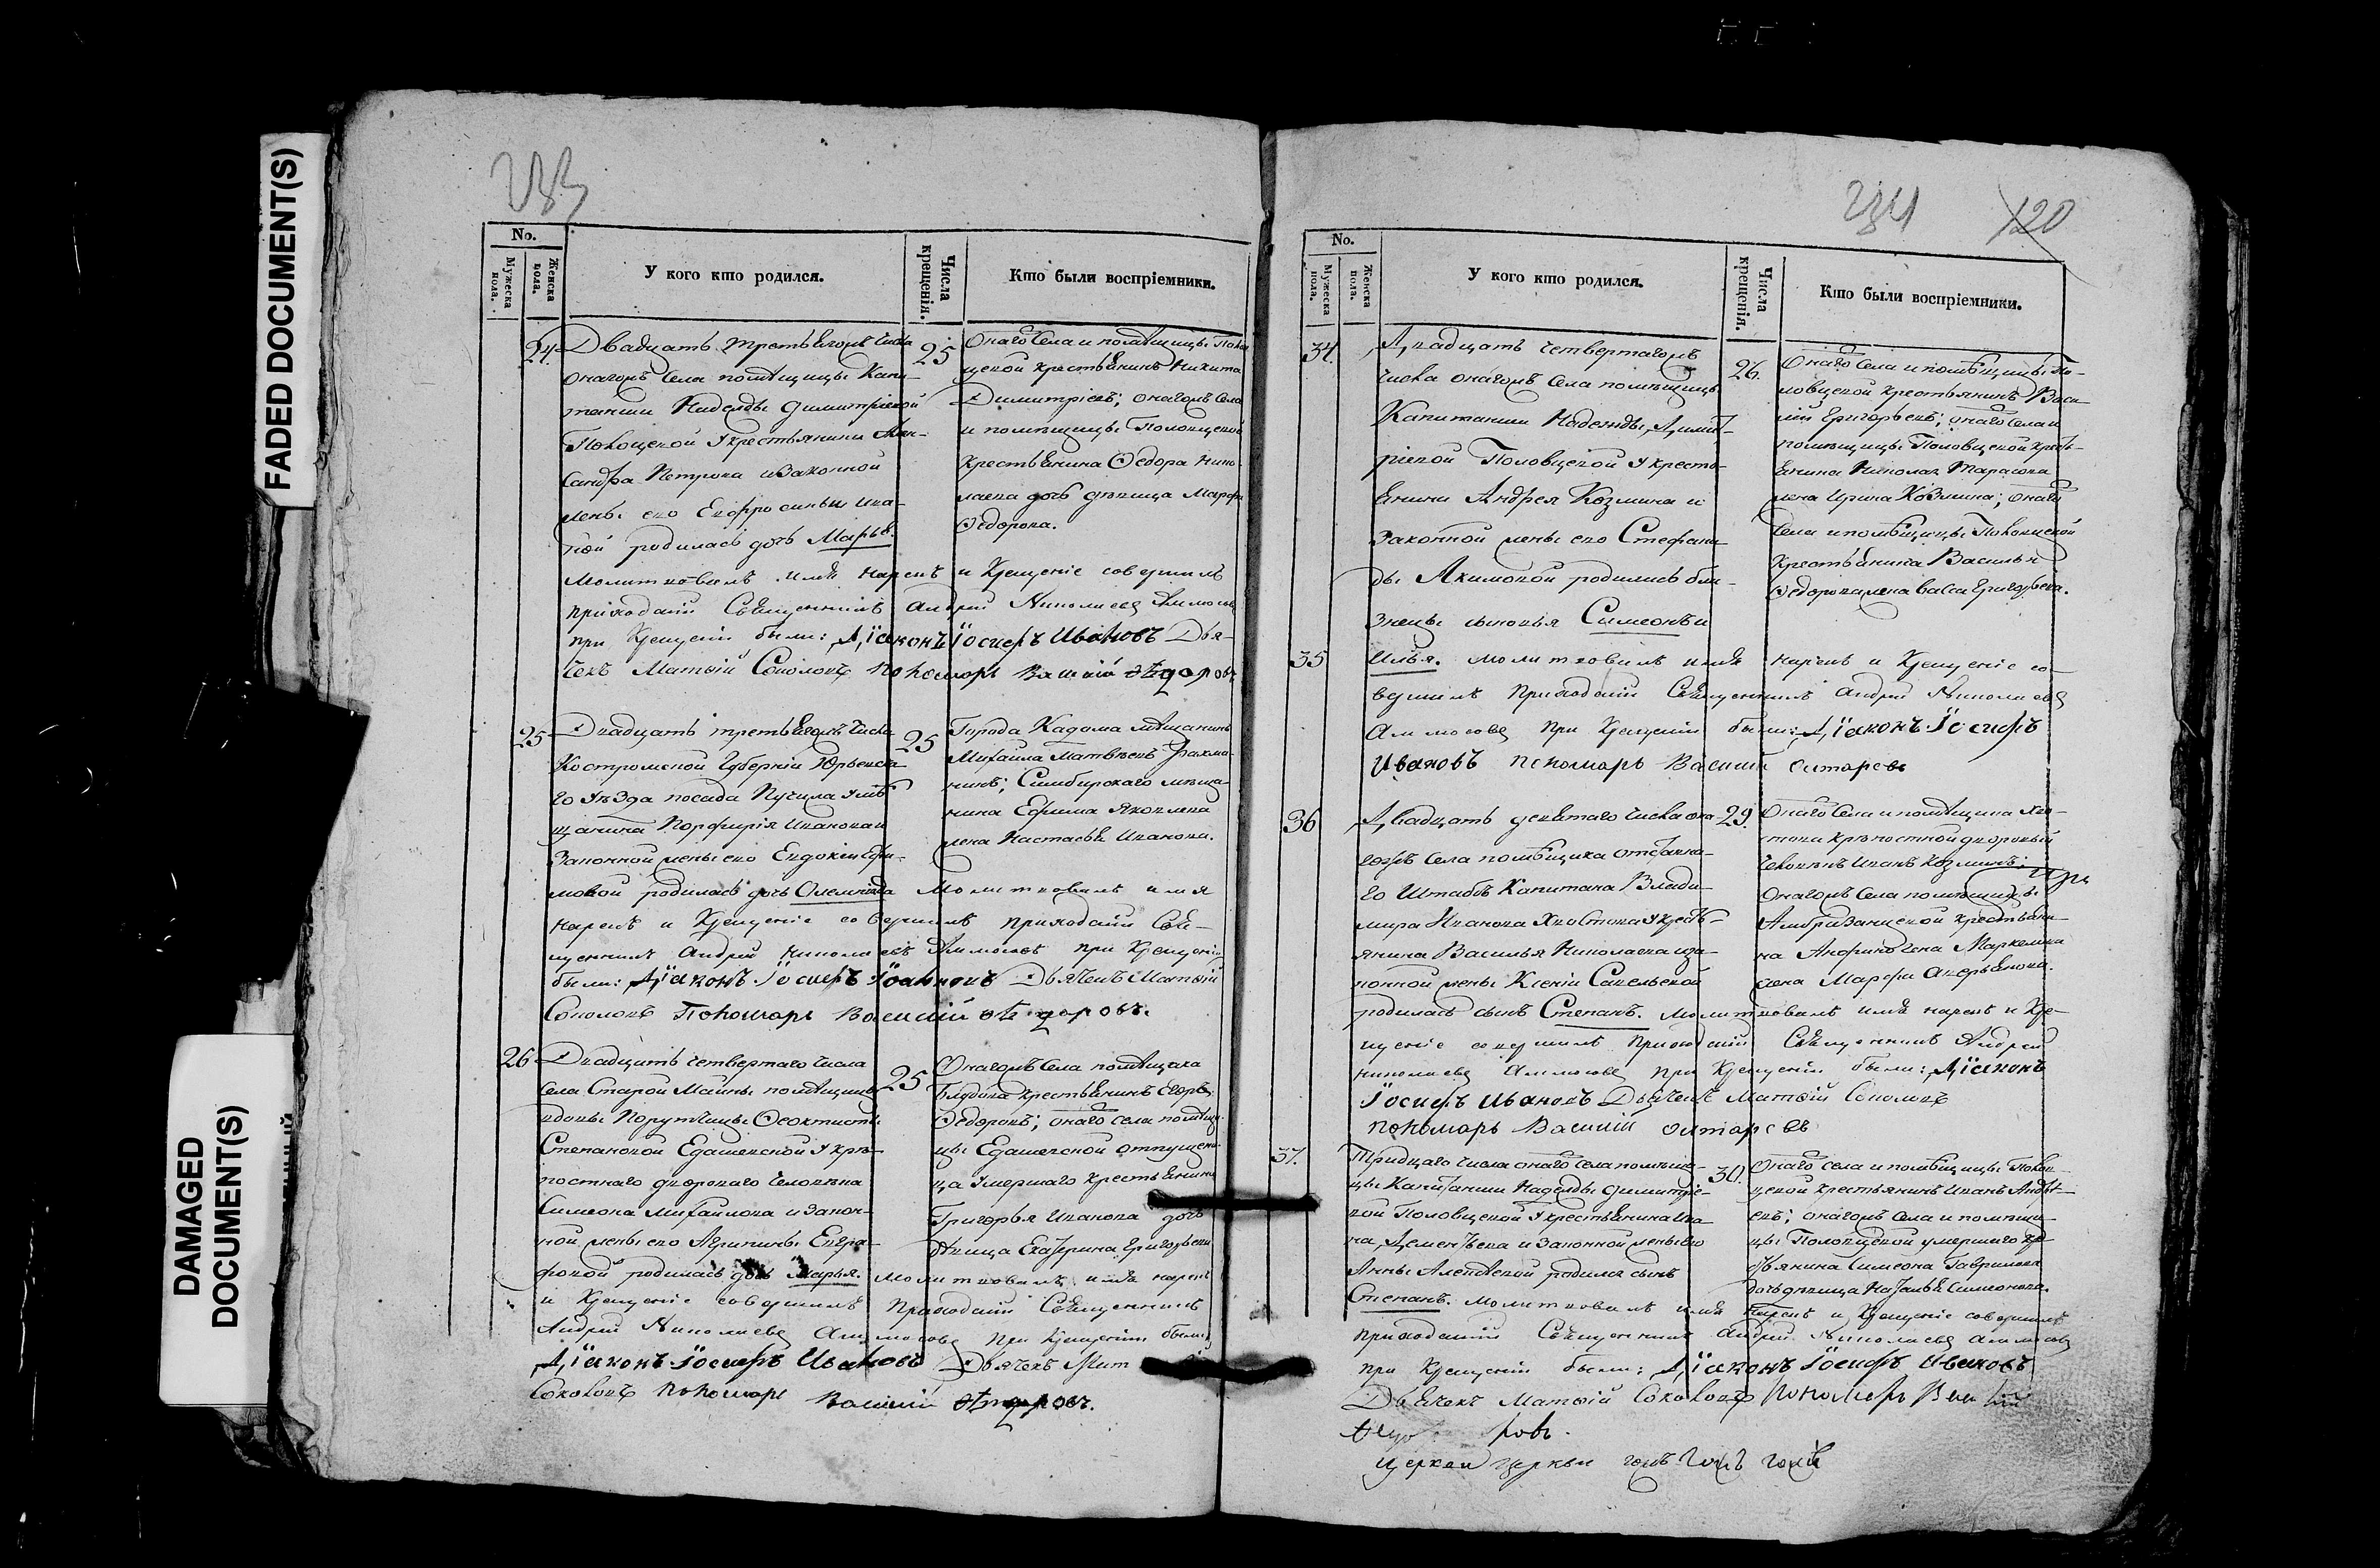 FADED DOCUMENT(S)
DAMAGED
DOCUMENT(S)
233
No.
Мужеска пола.
Женска пола.
У кого кто родился.
Числа крещенія.
Кто были воспріемники.
24
Двадцать третьягомъ числа
онагомъ села помѣщицы Капи-
танши Надежды Димитріевой
Половцевой у крестьянина Алек-
сандра Петрова и законной
жены его Евфросиньи Ива-
ной родилась дочь Марья.
25
Онаго села и помѣщицы Полов
цевой крестьянинъ Никита
Димитріевъ; онагомъ села
и помѣщицы Половцевой
крестьянина Ѳедора Нико-
лаева дочь дѣвица Марфа
Ѳедорова.
Молитвовалъ имя нарекъ и Крещеніе совершилъ
приходскій Священникъ Андрей Николаевъ Аммосовъ
при Крещеніи были: Діаконъ Іосифъ Ивановъ Дья-
чекъ Матѳій Соколовъ пономарь Василій Ѳедоровъ
25
Двадцать третьягомъ числа
Костромской Губерніи Юрьевска
го уѣзда посада Пучежа у мѣ
щанина Порфирія Иванова и
Законной жены его Евдокіи Ефи-
мовой родилась дочь Олемпіада
25
Города Кадома мѣщанинъ
Михайла Матвѣевъ Рахма-
нинъ; Симбирскаго мѣща-
нина Ефима Яковлева
жена Настасья Иванова.
Молитвовалъ имя
нарекъ и Крещеніе совершилъ приходскій Свя-
щенникъ Андрей Николаевъ Аммосовъ при Крещеніи
были: Діаконъ Іосифъ Іоанновъ Дьячекъ Матѳій
Соколовъ Пономарь Василій Ѳедоровъ.
26
Двадцать четвертаго числа
села Старой Майны помѣщицы
вдовы Порутчицы Ѳеоктисты
Степановой Едашевской у крѣ-
постнаго двороваго человѣка
Симеона Михайлова и закон-
ной жены его Агрипины Евгра-
фовой родилась дочь Марья.
25
Онагомъ села помѣщика
крестьянинъ Егоръ
Ѳедоровъ; онаго села помѣщи-
цы Едашевской отпущени-
ца умершаго крестьянина
Григорья Иванова дочь
дѣвица Екатерина Григорьева
молитвовалъ имя нарекъ
и Крещеніе совершилъ Приходскій Священникъ
Андрей Николаевъ Аммосовъ при Крещеніи были:
Діаконъ Іосифъ Ивановъ Дьячекъ Мат
Соколовъ пономарь Василій Ѳедоровъ.
234
120
No.
Мужеска пола.
Женска пола.
У кого кто родился.
Числа крещенія.
Кто были воспріемники.
34.
Двадцать четвертагомъ
числа онагомъ села помѣщицы
Капитанши Надежды Димит-
ріевой Половцевой у кресть-
янина Андрея Козмина и
Законной жены его Стефани-
ды Акимовой родились бли-
знецы сыновья Симеонъ и
26.
Онаго села и помѣщицы По-
ловцевой крестьянинъ Васи-
лій Григорьевъ; онаго села и
помѣщицы Половцевой кресть-
янина Николая Тарасова
жена Ирина Козмина; онаго
села и помѣщицы Половцевой
крестьянина Василья
Ѳедорова жена Васса Григорьева.
35
Илья. молитвовалъ имя нарекъ и Крещеніе со-
вершилъ приходскій Священникъ Андрей Николаевъ
Аммосовъ при Крещеніи были: Діаконъ Іосифъ
Ивановъ пономарь Василій
36
Двадцать девятаго числа она-
гомъ села помѣщика отставна-
го Штабсъ Капитана Влади-
мира Иванова Хвостова у кресть-
янина Василья Николаева и за-
конной жены Ксеніи Савельевой
родилась сынъ Степанъ.
29.
Онаго села и помѣщика Хво-
стова крѣпостной дворовый
человѣкъ Иванъ Козминъ;
онагомъ села помѣщицы
крестьяни-
на
жена Марфа Аверьянова.
молитвовалъ имя нарекъ и Кре-
щеніе совершилъ приходскій Священникъ Андрей
Николаевъ Аммосовъ при Крещеніи были: Діаконъ
Іосифъ Ивановъ Дьячекъ Матѳій Соколовъ
пономарь Василій
37.
Тридцаго числа онаго села помѣщи-
цы Капитанши Надежды Димитріе-
вой Половцевой у крестьянина Ива-
на Деменьева и законной жены его
Анны Алексѣевой родился сынъ
Степанъ.
30.
Онаго села и помѣщицы Полов-
цевой крестьянинъ Иванъ Андрѣ-
евъ; онагомъ села и помѣщи-
цы Половцевой умершаго кре-
стьянина Симеона Гаврилова
дочь дѣвица Наталья Симеонова.
молитвовалъ имя нарекъ и Крещеніе совершилъ
приходскій Священникъ Андрей Николаевъ Аммосовъ
при Крещеніи были: Діаконъ Іосифъ Ивановъ
Дьячекъ Матѳій Соколовъ Пономарь Василій
ровъ.
церкви церкви